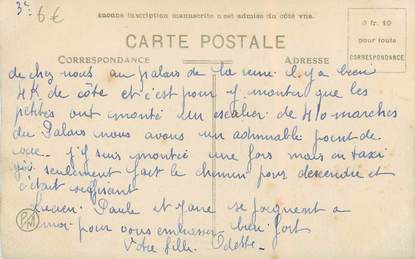 3c 6€
Aucune inscription manuscrite n'est admise du côté vue.
0 fr. 10
pour toute
CORRESPONDANCE
CARTE POSTALE
CORRESPONDANCE
ADRESSE
de chez nous au palais de la reine il y a bien
4K de côte et c'est pour y monter que les
petites ont monté un escalier de 410 marches
du Palais nous avons un admirable point de
vue. j'y suis montée une fois mais en taxi
j'ai seulement fait le chemin pour descendre et
c'était suffisant
Lucien Paule et Jane se joignent a
moi pour vous embrasser bien fort
Votre fille Odette